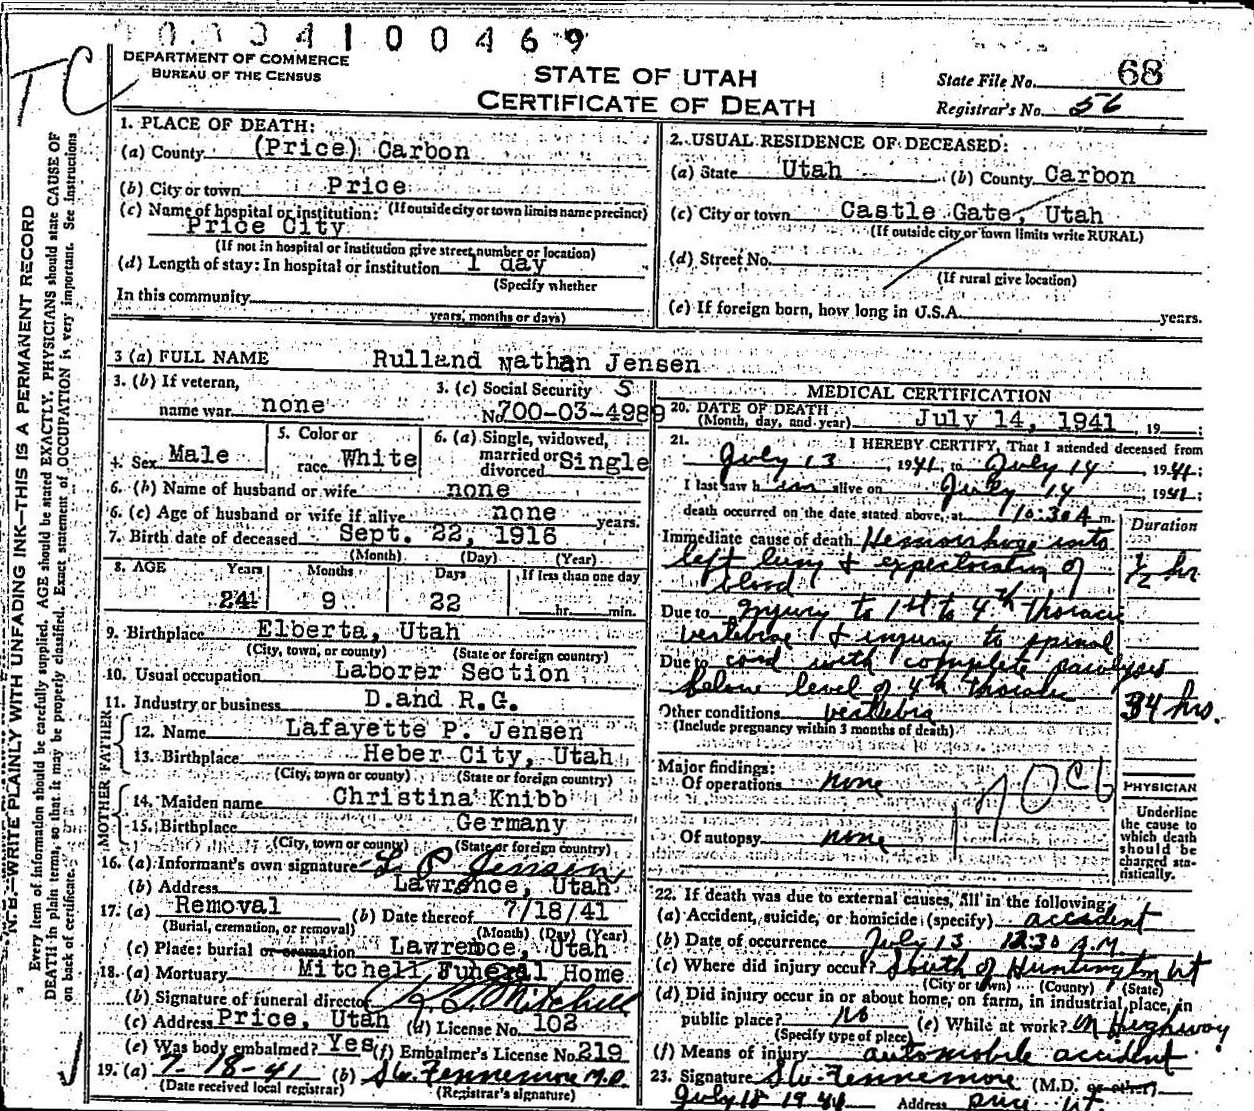 0034100469
TC
DEPARTMENT OF COMMERCE
BUREAU OF THE CENSUS
STATE OF UTAH
CERTIFICATE OF DEATH
State File No. 68
Registrar's No. 56
N.B.—WRITE PLAINLY WITH UNFADING INK—THIS IS A PERMANENT RECORD
Every item of information should be carefully supplied. AGE should be stated EXACTLY. PHYSICIANS should state CAUSE OF
DEATH in plain terms, so that it may be properly classified. Exact statement of OCCUPATION is very important. See Instructions
on back of certificate.
1. PLACE OF DEATH:
(a) County (Price) Carbon
(b) City or town Price
(c) Name of hospital or institution: (If outside city or town limits name precinct)
Price City
(If not in hospital or Institution give street number or location)
(d) Length of stay: In hospital or institution 1 day
(Specify whether
In this community
years, months or days)
2. USUAL RESIDENCE OF DECEASED:
(a) State Utah (b) County Carbon
(c) City or town Castle Gate, Utah
(If outside city or town limits write RURAL)
(d) Street No.
(If rural give location)
(e) If foreign born, how long in U.S.A. years.
3 (a) FULL NAME Rulland Nathan Jensen
3. (b) If veteran,
name war none
3. (c) Social Security 5
No. 700-03-4989
4. Sex Male
5. Color or
race White
6. (a) Single, widowed,
married or
divorced Single
6. (b) Name of husband or wife none
6. (c) Age of husband or wife if alive none years.
7. Birth date of deceased Sept. 22, 1916
(Month) (Day) (Year)
8. AGE Years Months Days If less than one day
24 9 22 hr. min.
9. Birthplace Elberta, Utah
(City, town, or county) (State or foreign country)
10. Usual occupation Laborer Section
11. Industry or business D. and R.G.
FATHER
12. Name Lafayette P. Jensen
13. Birthplace Heber City, Utah
(City, town or county) (State or foreign country)
MOTHER
14. Maiden name Christina Knibb
15. Birthplace Germany
(City, town or county) (State or foreign country)
16. (a) Informant's own signature L. P. Jensen
(b) Address Lawrence, Utah
17. (a) Removal (b) Date thereof 7/18/41
(Burial, cremation, or removal) (Month) (Day) (Year)
(c) Place: burial or cremation Lawrence, Utah
18. (a) Mortuary Mitchell Funeral Home
(b) Signature of funeral director Mitchell
(c) Address Price, Utah (d) License No. 102
(e) Was body embalmed? Yes (f) Embalmer's License No. 219
19. (a) 7-18-41 (b) Fennemore M.D.
(Date received local registrar) (Registrar's signature)
MEDICAL CERTIFICATION
20. DATE OF DEATH
(Month, day, and year) July 14, 1941, 19
21. I HEREBY CERTIFY, That I attended deceased from
July 13, 1941, to July 14 1941;
I last saw him alive on July 14, 1941;
death occurred on the date stated above, at 10:30 A m.
Duration
Immediate cause of death Hemorrhage into
left lung & expectoration of
blood
1/2 hr
Due to Injury to 1st to 4th Thoracic
vertebrae & injury to spinal
Due to cord with complete paralysis
below level of 4th Thoracic
34 hrs.
Other conditions vertebra
(Include pregnancy within 3 months of death)
Major findings:
Of operations none
Of autopsy none
170c6
PHYSICIAN
Underline
the cause to
which death
should be
charged sta-
tistically.
22. If death was due to external causes, fill in the following:
(a) Accident, suicide, or homicide (specify) accident
(b) Date of occurrence July 13 12:30 A.M
(c) Where did injury occur? South of Huntington Ut
(City or town) (County) (State)
(d) Did injury occur in or about home, on farm, in industrial place, in
public place? no (e) While at work? on Highway
(Specify type of place)
(f) Means of injury automobile accident
23. Signature Fennemore (M.D. or other)
July 18 1941 Address Price Ut